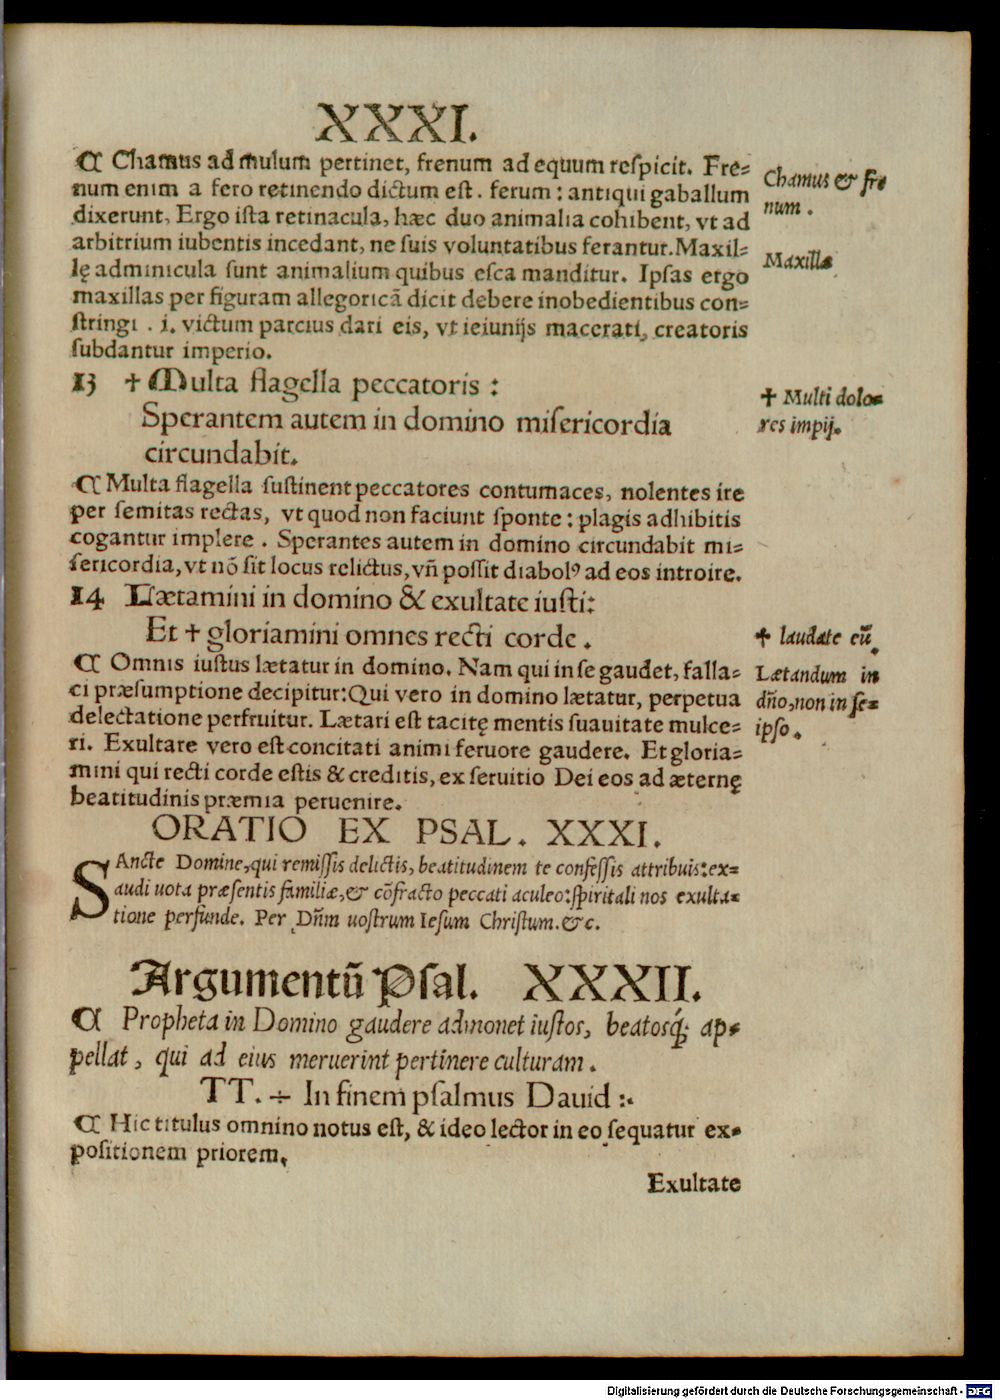 XXXI.
¶ Chamus ad mulum pertinet, frenum ad equum respicit. Fre=
num enim a fero retinendo dictum est. ferum: antiqui gaballum
dixerunt. Ergo ista retinacula, hæc duo animalia cohibent, vt ad
arbitrium iubentis incedant, ne suis voluntatibus ferantur. Maxil=
lę adminicula sunt animalium quibus esca manditur. Ipsas ergo
maxillas per figuram allegoricā dicit debere inobedientibus con=
stringi . i. victum parcius dari eis, vt ieiunijs macerati, creatoris
subdantur imperio.
Chamus & fre
num .
Maxillæ
13 † Multa flagella peccatoris :
Sperantem autem in domino misericordia
circundabit.
† Multi dolo=
res impij.
¶ Multa flagella sustinent peccatores contumaces, nolentes ire
per semitas rectas, vt quod non faciunt sponte: plagis adhibitis
cogantur implere . Sperantes autem in domino circundabit mi=
sericordia, vt nō sit locus relictus, vñ possit diabolꝰ ad eos introire.
14 Lætamini in domino & exultate iusti:
Et † gloriamini omnes recti corde .
† laudate eū.
¶ Omnis iustus lætatur in domino. Nam qui in se gaudet, falla=
ci præsumptione decipitur: Qui vero in domino lætatur, perpetua
delectatione perfruitur. Lætari est tacitę mentis suauitate mulce=
ri. Exultare vero est concitati animi feruore gaudere. Et gloria=
mini qui recti corde estis & creditis, ex seruitio Dei eos ad æternę
beatitudinis præmia peruenire.
Lætandum in
dño, non in se=
ipso.
ORATIO EX PSAL. XXXI.
SAncte Domine, qui remissis delictis, beatitudinem te confessis attribuis: ex=
audi uota præsentis familiæ, & cōfracto peccati aculeo: spiritali nos exulta=
tione perfunde. Per Dñm nostrum Iesum Christum. &c.
Argumentū Psal. XXXII.
¶ Propheta in Domino gaudere admonet iustos, beatosq́; ap=
pellat, qui ad eius meruerint pertinere culturam .
TT. ÷ In finem psalmus Dauid :.
¶ Hic titulus omnino notus est, & ideo lector in eo sequatur ex=
positionem priorem.
Exultate
Digitalisierung gefördert durch die Deutsche Forschungsgemeinschaft - DFG